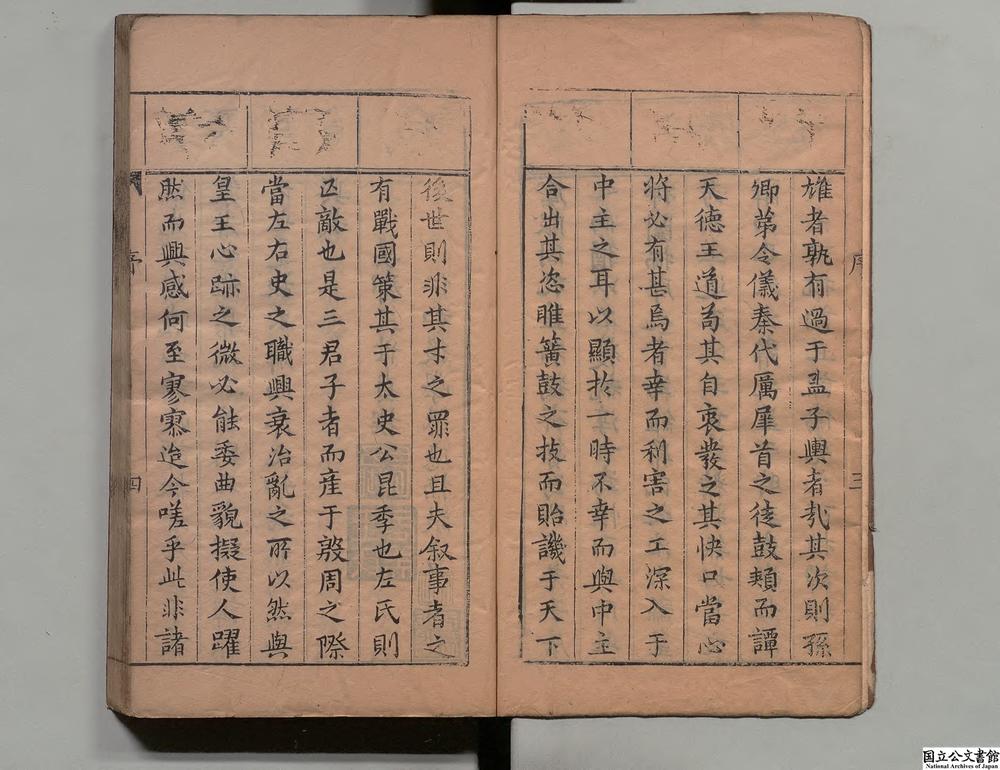 序
三
雄者孰有過于孟子輿者哉其次則孫
卿苐令儀秦代厲犀首之徒鼓頰而譚
天德王道苟其自衷發之其快口當心
將必有甚焉者幸而利害之工深入于
中主之耳以顯扵一時不幸而與中主
合出其恣睢簧鼓之技而貽譏于天下
後世則非其才之罪也且夫叙事者之
有戰國策其于太史公昆季也左氏則
匹敵也是三君子者而産于殷周之際
當左右史之職興衰治亂之所以然與
皇王心跡之微必能委曲貌擬使人躍
然而興感何至寥寥迨今嗟乎此非諸
序
四
国立公文書館
National Archives of Japan